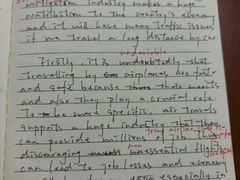 industry makes a huge
contribution to the country's economy
and it will have many traffic issues
if we travel a long distance by car.
undeniable
Firstly, it is undoubtedly that
travelling by airplanes are fast
and safe because their merits
and also they play a crucial role
To be more specific, air travel
supports a huge industry that
can provide million
discouraging unessential flights
can lead to job losses and economy
especially in